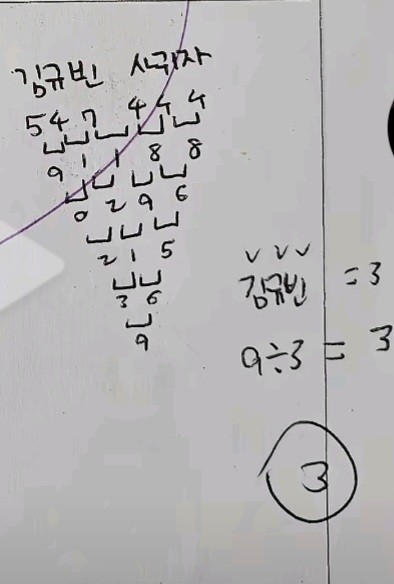 김규빈 사귀자
5 4 7 4 4 4
9 1 1 8 8
0 2 9 6
2 1 5
3 6
9
김규빈 = 3
9÷3 = 3
3